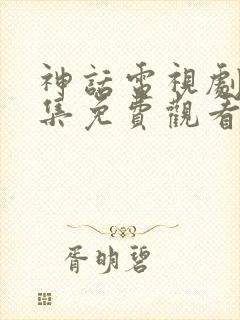 神話電視劇
集免費觀看
胥明碧